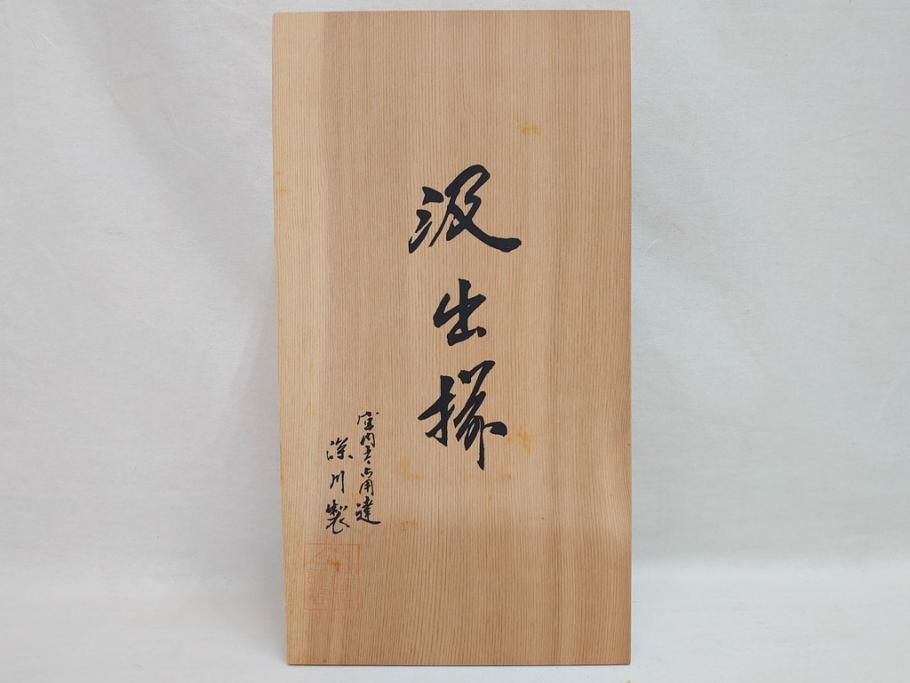 汲出揃
宮内省御用達
深川製